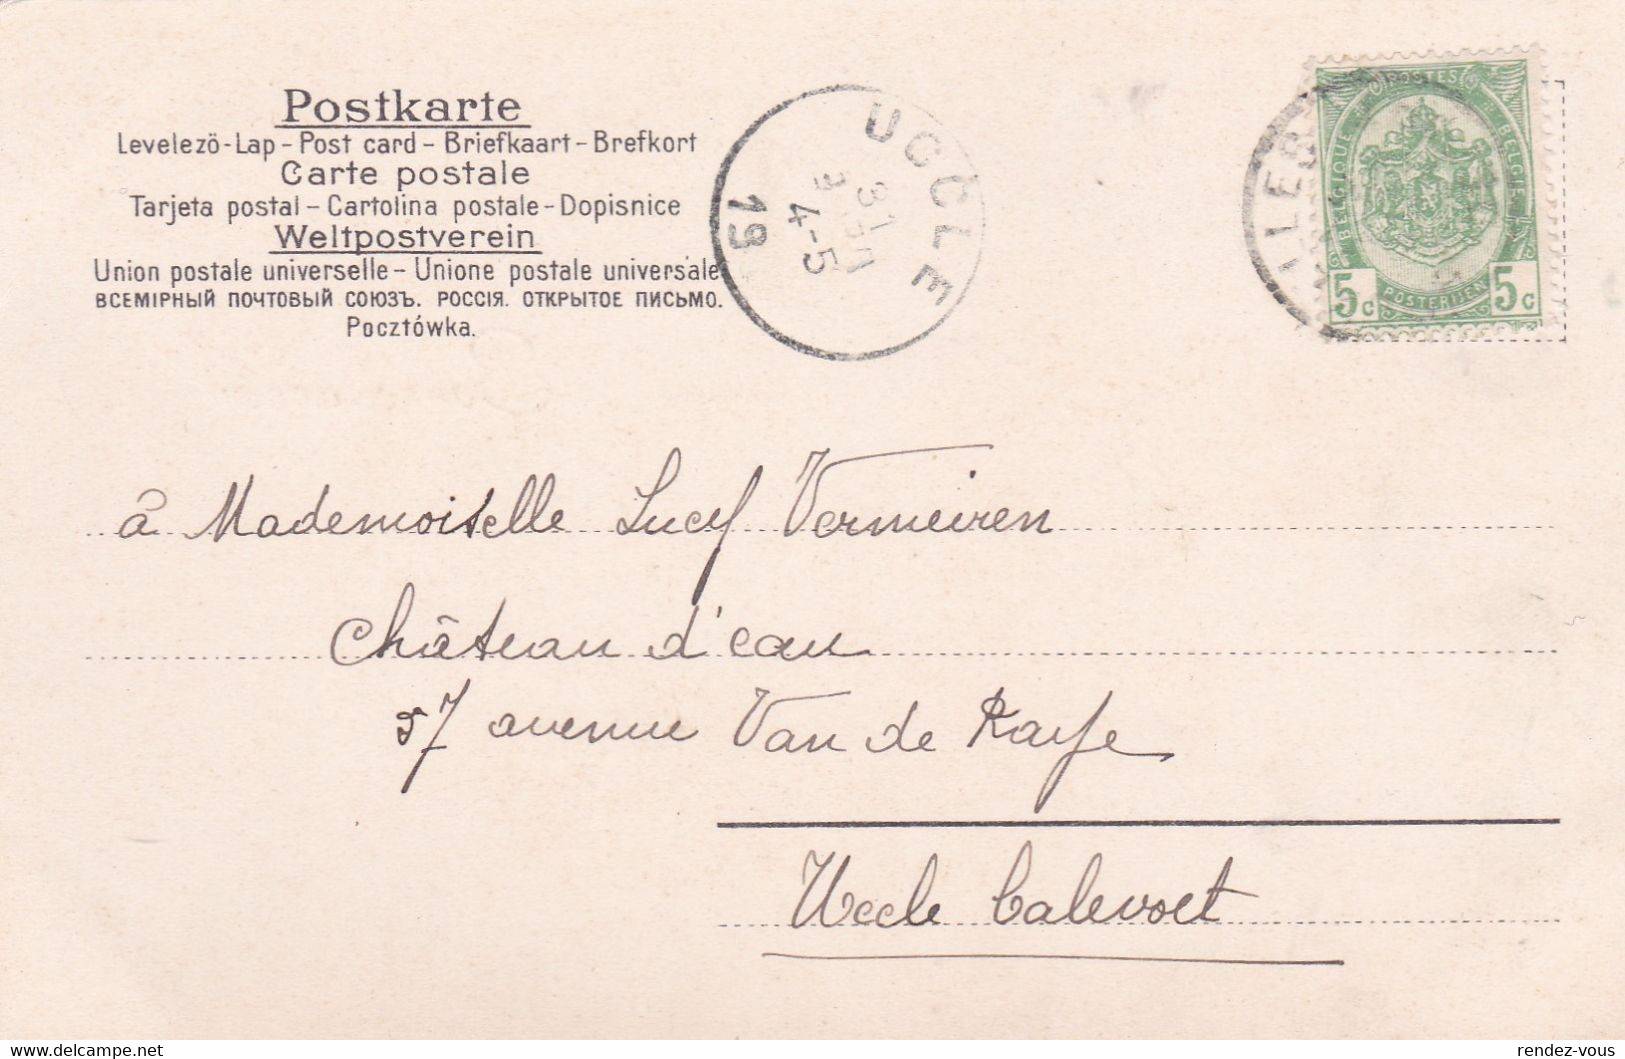 Postkarte
Levelezö-Lap - Post card - Briefkaart - Brefkort
Carte postale
Tarjeta postal - Cartolina postale - Dopisnice
Weltpostverein
Union postale universelle - Unione postale universale
ВСЕМІРНЫЙ ПОЧТОВЫЙ СОЮЗЪ. РОССІЯ. ОТКРЫТОЕ ПИСЬМО.
Pocztówka.
UCCLE
31
4-5
19
POSTES
BELGIQUE BELGIE
POSTERIJEN
5c 5c
à Mademoiselle Lucy Vermeiren
Château d'eau
57 avenue Van de Raye
Uccle Calevoet
rendez-vous
www.delcampe.net